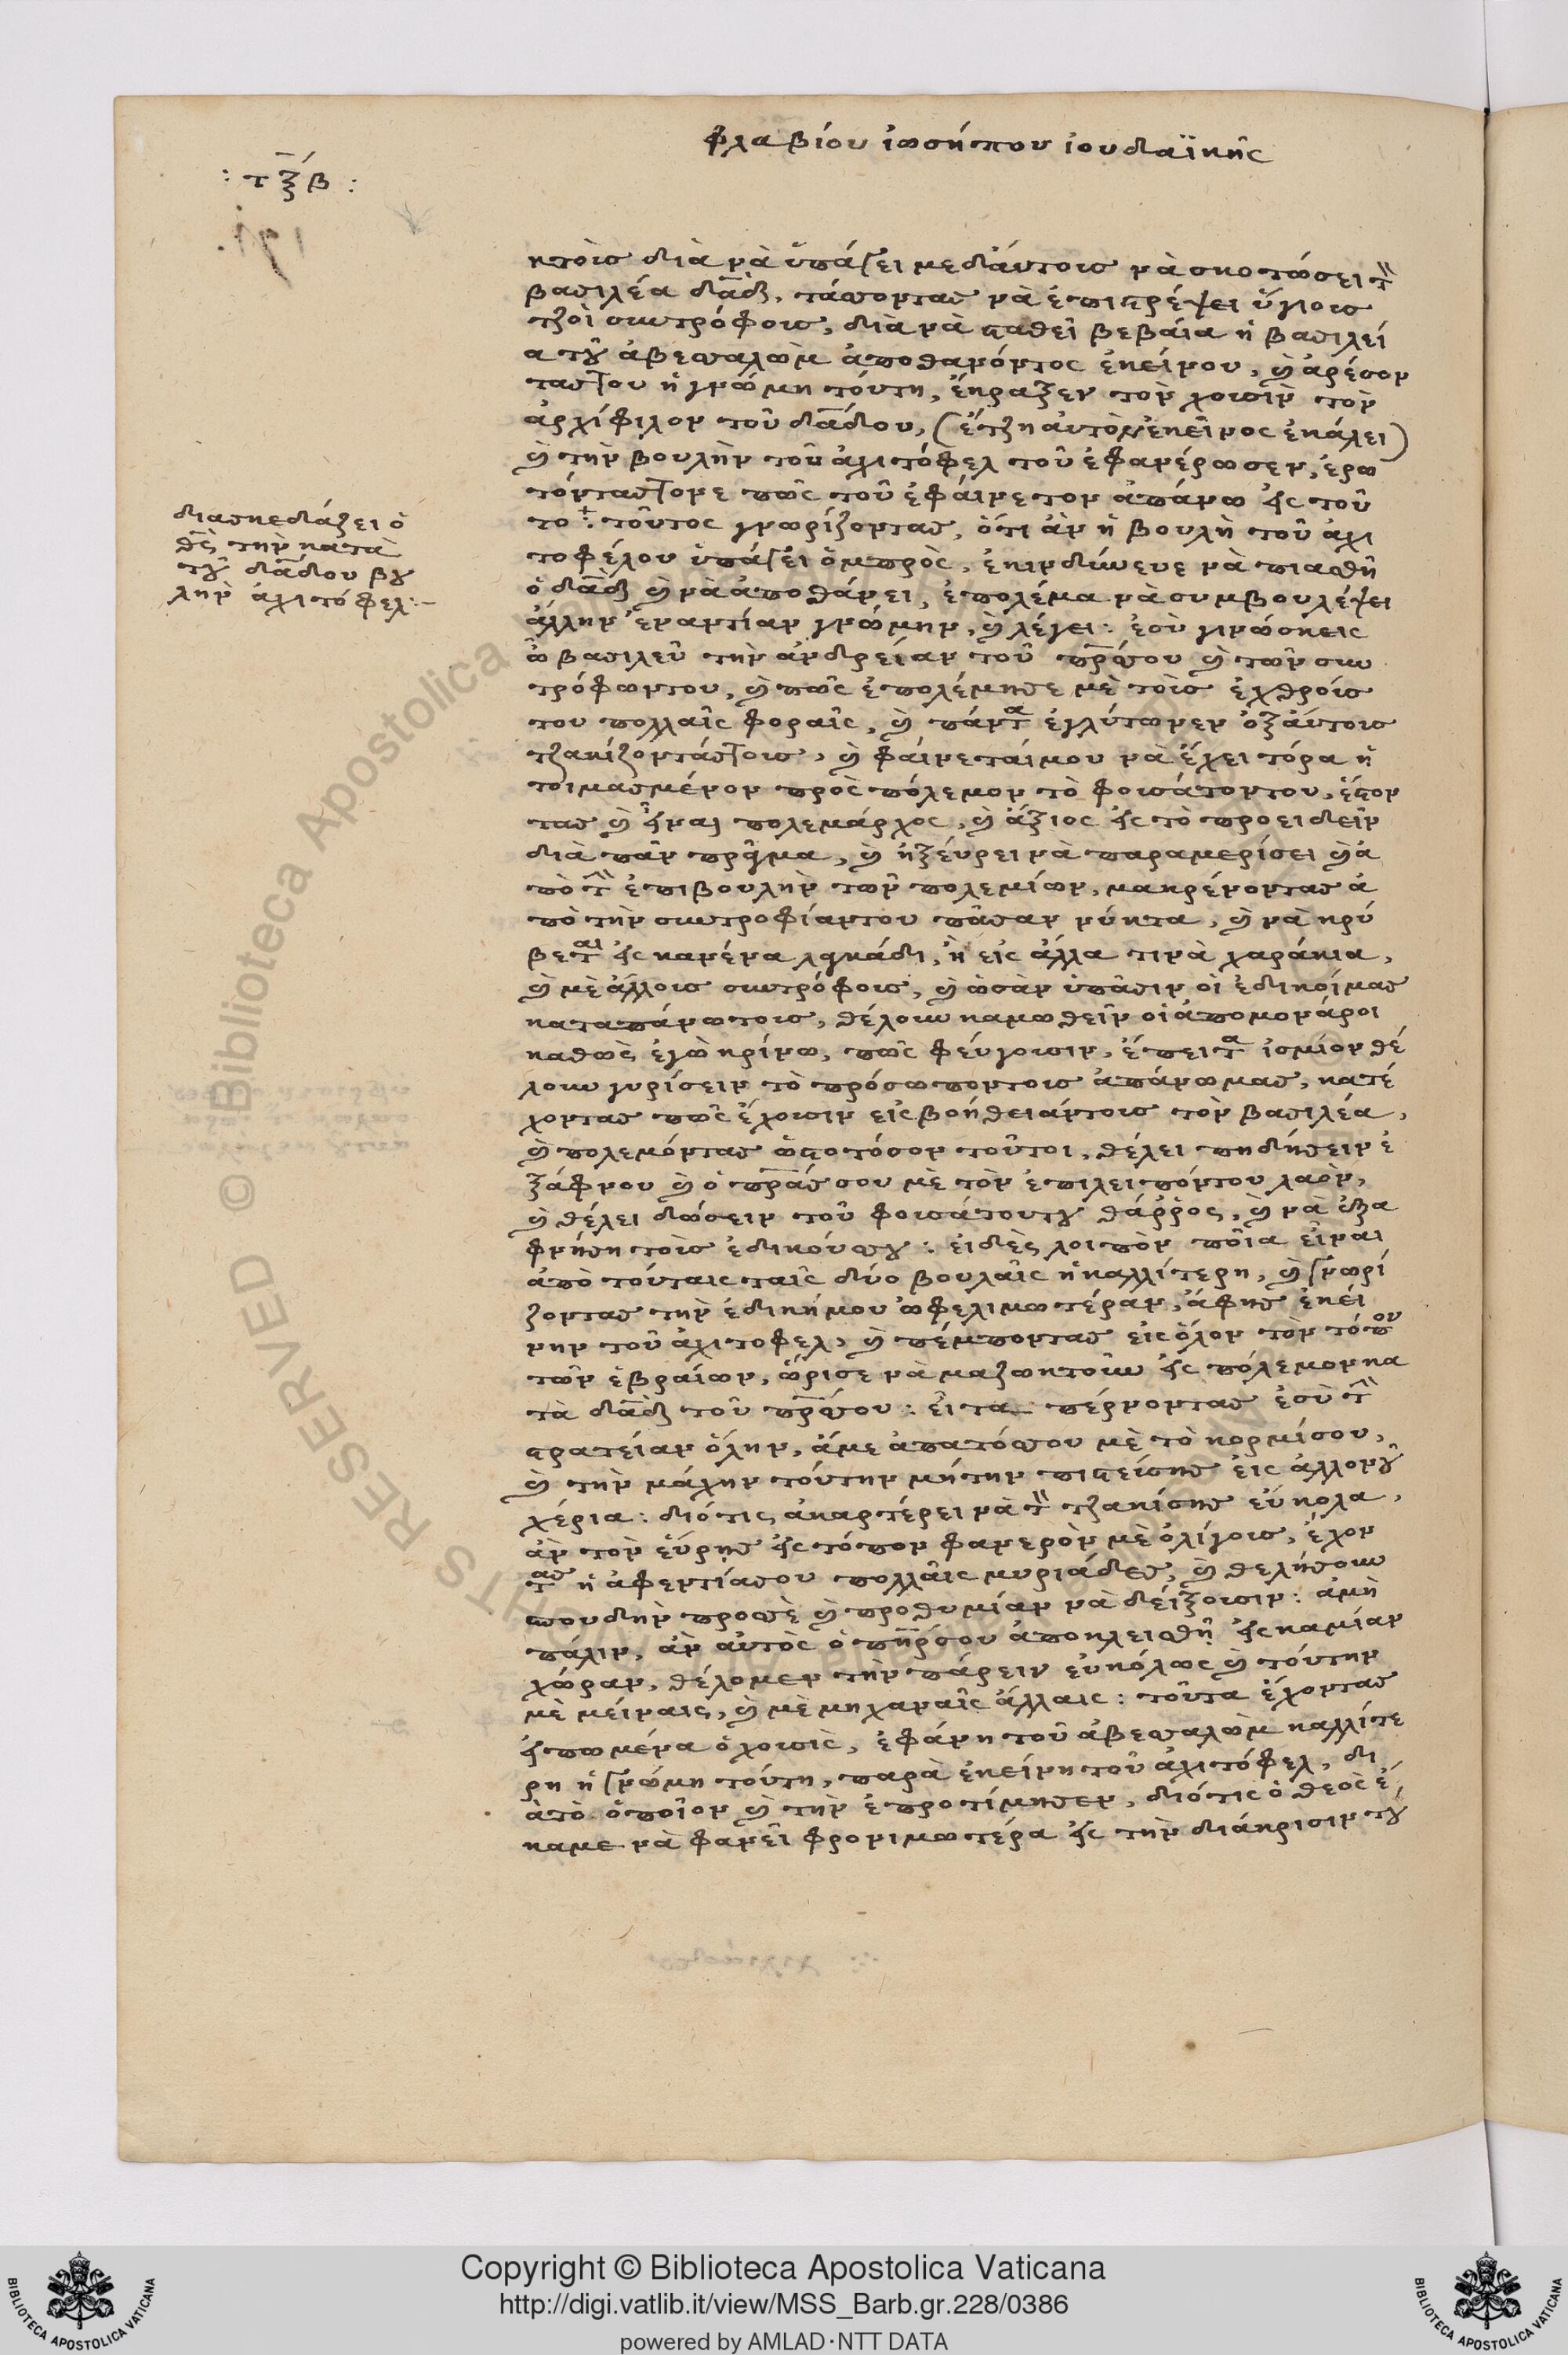 φλαβίου ἰωσήπου ἰουδαϊκῆς
: τξβ :
κτοὶσ διὰ νὰ ὑπάγει μεδάυτουσ νὰ σκοτώσει τὸν
βασιλέα δαδ, τάσσοντασ νὰ ἐπιστρέψει ὕγιουσ
τζοὶ συντρόφουσ, διὰ νὰ σταθεῖ βεβαία ἡ βασιλεί
α τοῦ ἀβεσαλὼμ ἀποθανόντος ἐκείνου, καὶ ἀρέσον
τασ του ἡ γνώμη τούτη, ἔκραξεν τὸν χουσὶν τὸν
ἀρχίφιλον τοῦ δαδίου, (ἔτζη αὐτὸν ἐκεῖνος ἐκάλει)
καὶ τὴν βουλὴν τοῦ ἀχιτόφελ τοῦ ἐφανέρωσεν, ἐρω
τόντασ τονε πῶς τοῦ ἐφάινετον ἀπάνω εἰς τοῦ
το : τοῦτος γνωρίζοντασ, ὅτι ἀν ἡ βουλὴ τοῦ ἀχι
τοφέλου ὑπάγει ὀμπρὸς, ἐκινδύνευε νὰ πιασθῆ
ὁ δαδ καὶ νὰ ἀποθάνει, ἐπολέμα νὰ συμβουλέψει
ἄλλην ἐναντίαν γνώμην, καὶ λέγει : ἐσὺ γινώσκεις
ὦ βασιλεῦ τὴν ἀνδρείαν τοῦ πρσου καὶ τῶν συν
τρόφωντου, καὶ πῶς ἐπολέμησε μὲ τοὶσ ἐχθροὶσ
του πολλαῖς φοραῖς, καὶ πάντα ἐγλύτωνεν ὀξάυτουσ
τζακίζοντάσ τουσ, καὶ φαίνεταίμου νὰ ἔχει τόρα ἡ
τοιμασμένον πρὸς πόλεμον τὸ φουσάτοντου, ἔστον
τασ καὶ εἶναι πολεμάρχος, καὶ ἄξιος εἰς τὸ προειδεῖν
διὰ πᾶν πρᾶγμα, καὶ ἠξεύρει νὰ παραμερίσει καὶ ἀ
πὸ τὴν ἐπιβουλὴν τῶν πολεμίων, μακρένοντασ ἀ
πὸ τὴν συντροφίαντου πᾶσαν νύκτα, καὶ νὰ κρύ
βεται εἰς κανένα λαγκάδι, ἢ εἰς ἄλλα τινὰ χαράκια,
καὶ μὲ ἄλλουσ συντρόφουσ, καὶ ὡσὰν ὑπᾶσιν οἱ ἐδικοίμασ
καταπάνωτουσ, θέλουν καμωθεῖν οἱ ἀπομονάροι
καθὼς ἐγὼ κρίνω, πῶς φέυγουσιν, ἔπειτα ἰσμίον θέ
λουν γυρίσειν τὸ πρόσωποντουσ ἀπάνωμασ, κατέ
χοντασ πῶς ἔχουσιν εἰς βοήθειάντουσ τὸν βασιλέα,
καὶ πολεμόντασ ὡστοτόσον τοῦτοι, θέλει πηδήσειν ἐ
ξάφνου καὶ ὁ πράσ σου μὲ τὸν ἐπιλειπόντου λαὸν,
καὶ θέλει δώσειν τοῦ φουσάτουντου θάρρος, καὶ νὰ ἐξα
φνήση τοὶσ ἐδικούσου : εἰδὲς λοιπὸν ποῖα εἶναι
ἀπὸ τούταις ταῖς δύο βουλαῖς ἡ καλλίτερη, καὶ γνωρί
ζοντασ τὴν ἐδικήμου ὠφελιμωτέραν, ἄφησ ἐκεί
νην τοῦ ἀχιτοφελ, καὶ πέμποντασ εἰς ὅλον τὸν τόπον
τῶν ἑβραίων, ὥρισε νὰ μαζωκτοῦν εἰς πόλεμον κα
τὰ δαδ τοῦ πρσου : εἶτα πέρνοντασ ἐσὺ τὴν
στρατείαν ὅλην, ἄμε ἀπατόσου μὲ τὸ κορμίσου,
καὶ τὴν μάχην τούτην μήτην πιστέυσησ εἰς ἀλλονοῦ
χέρια : διότις ἀκαρτέρει νὰ τὸν τζακίσησ εὔκολα,
ἀν τὸν εὕρησ εἰς τόπον φανερὸν μὲ ὀλίγουσ, ἔχον
τασ ἡ ἀφεντίασου πολλᾶις μυριάδεσ, καὶ θελήσουν
σπουδὴν προσὲ καὶ προθυμίαν νὰ δείξουσιν : ἀμὴ
πάλιν, ἀν αὐτὸς ὁ πηρσου ἀποκλεισθῆ εἰς καμίαν
χώραν, θέλομεν τὴν πάρειν εὐκόλως καὶ τούτην
μὲ μείναις, καὶ μὲ μηχαναῖς ἄλλαις : τοῦτα ἔχοντασ
εἰπωμένα ὁ χουσὶς, ἐφάνη τοῦ ἀβεσαλὼμ καλλίτε
ρη ἡ γνώμη τούτη, παρὰ ἐκείνη τοῦ ἀχιτόφελ, δι
ὰτὸ ὁποῖον καὶ τὴν ἐπροτίμησεν, διότις ὁ θεὸς ἔ
καμε νὰ φανεῖ φρονιμωτέρα εἰς τὴν διάκρισιν τοῦ
διασκεδάζει ὁ
θς τὴν κατὰ
τοῦ δαδίου βου
λὴν ἀχιτόφελ :-
© Biblioteca Apostolica Vaticana
RIGHTS RESERVED
Copyright © Biblioteca Apostolica Vaticana
http://digi.vatlib.it/view/MSS_Barb.gr.228/0386
powered by AMLAD·NTT DATA
BIBLIOTECA APOSTOLICA VATICANA
BIBLIOTECA APOSTOLICA VATICANA